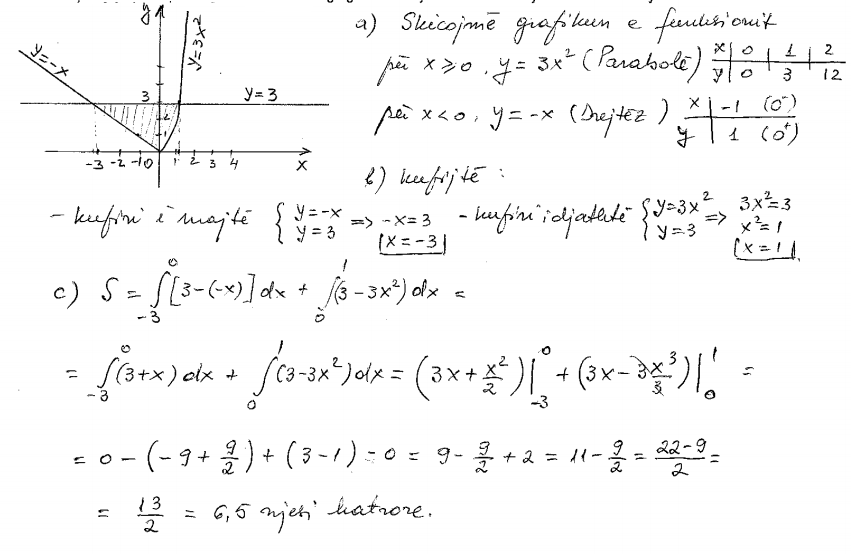 a) Skicojmë grafikun e funksionit
për x ≥ 0, y = 3x² (Parabolë) x | 0 | 1 | 2
y | 0 | 3 | 12
për x < 0, y = -x (Drejtëz) x | -1 (0⁻)
y | 1 (0⁺)
y
y=-x
y=3x²
3
y=3
2
1
-3 -2 -1 0 1 2 3 4 x
b) kufijtë :
- kufiri i majtë { y=-x y=3 => -x=3 - kufiri i djathtë { y=3x² y=3 => 3x²=3
x²=1
x=-3 x=1
c) S = ∫₋₃⁰ [3-(-x)] dx + ∫₀¹ (3 - 3x²) dx =
= ∫₋₃⁰ (3+x) dx + ∫₀¹ (3-3x²) dx = (3x + x²/2) |₋₃⁰ + (3x - 3x³/3) |₀¹ =
= 0 - (-9 + 9/2) + (3-1) - 0 = 9 - 9/2 + 2 = 11 - 9/2 = (22-9)/2 =
= 13/2 = 6,5 njësi katrore.